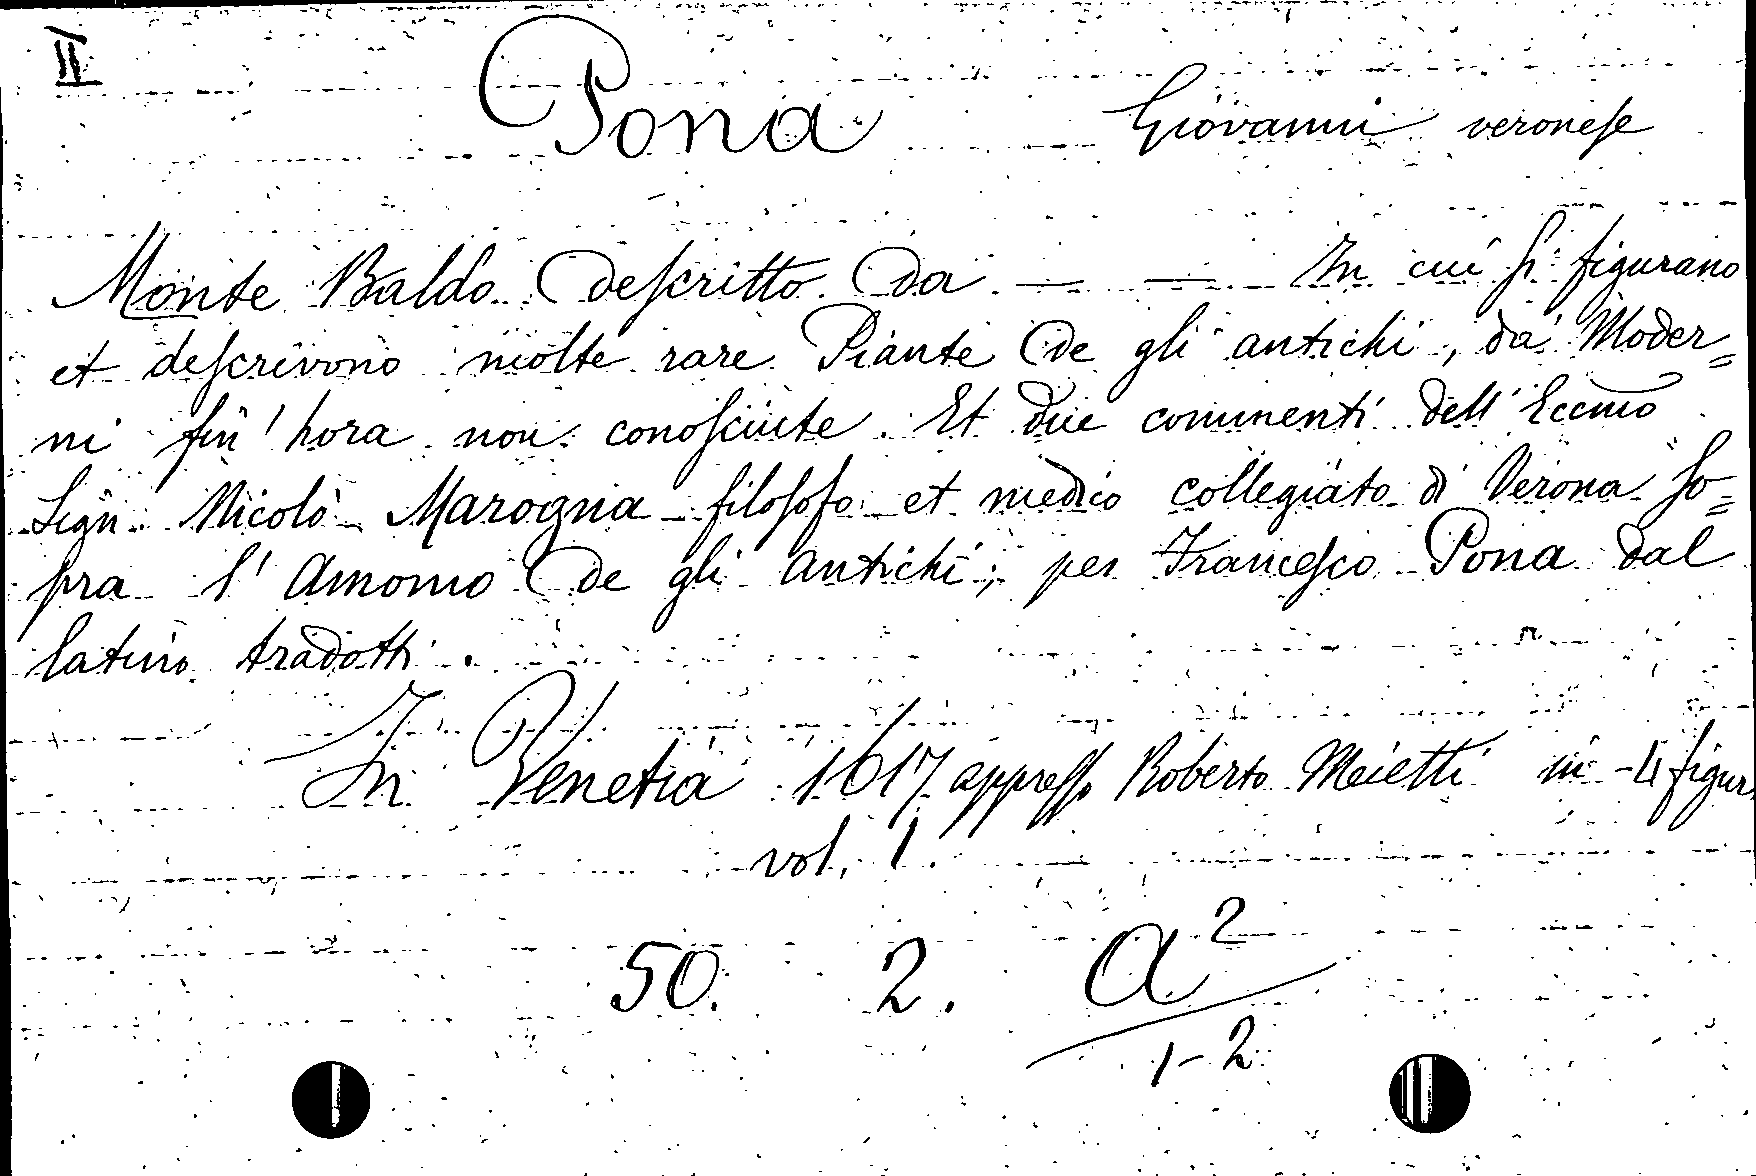 II
Pona Giovanni veronese
Monte Baldo descritto da — — In cui si figurano
et descrivono molte rare Piante de gli antichi, da' Moder=
ni fin' hora non conosciute. Et due commenti dell' Eccmo
Sign. Nicolò Marogna filosofo et medico collegiato di Verona so=
pra l' Amomo de gli antichi; per Francesco Pona dal
latino tradotti.
In Venetia 1617 appresso Roberto Meietti in-4 figur.
vol. 1.
50. 2. a 2
1-2